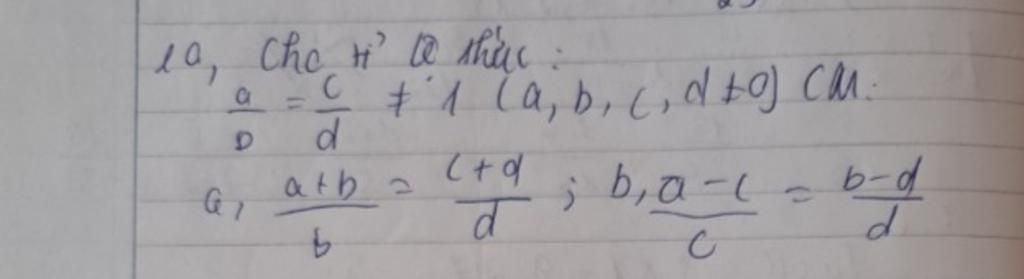 1a, Cho tỉ lệ thức:
a/b = c/d ≠ 1 (a, b, c, d ≠ 0) CM:
a, (a+b)/b = (c+d)/d ; b, (a-c)/c = (b-d)/d